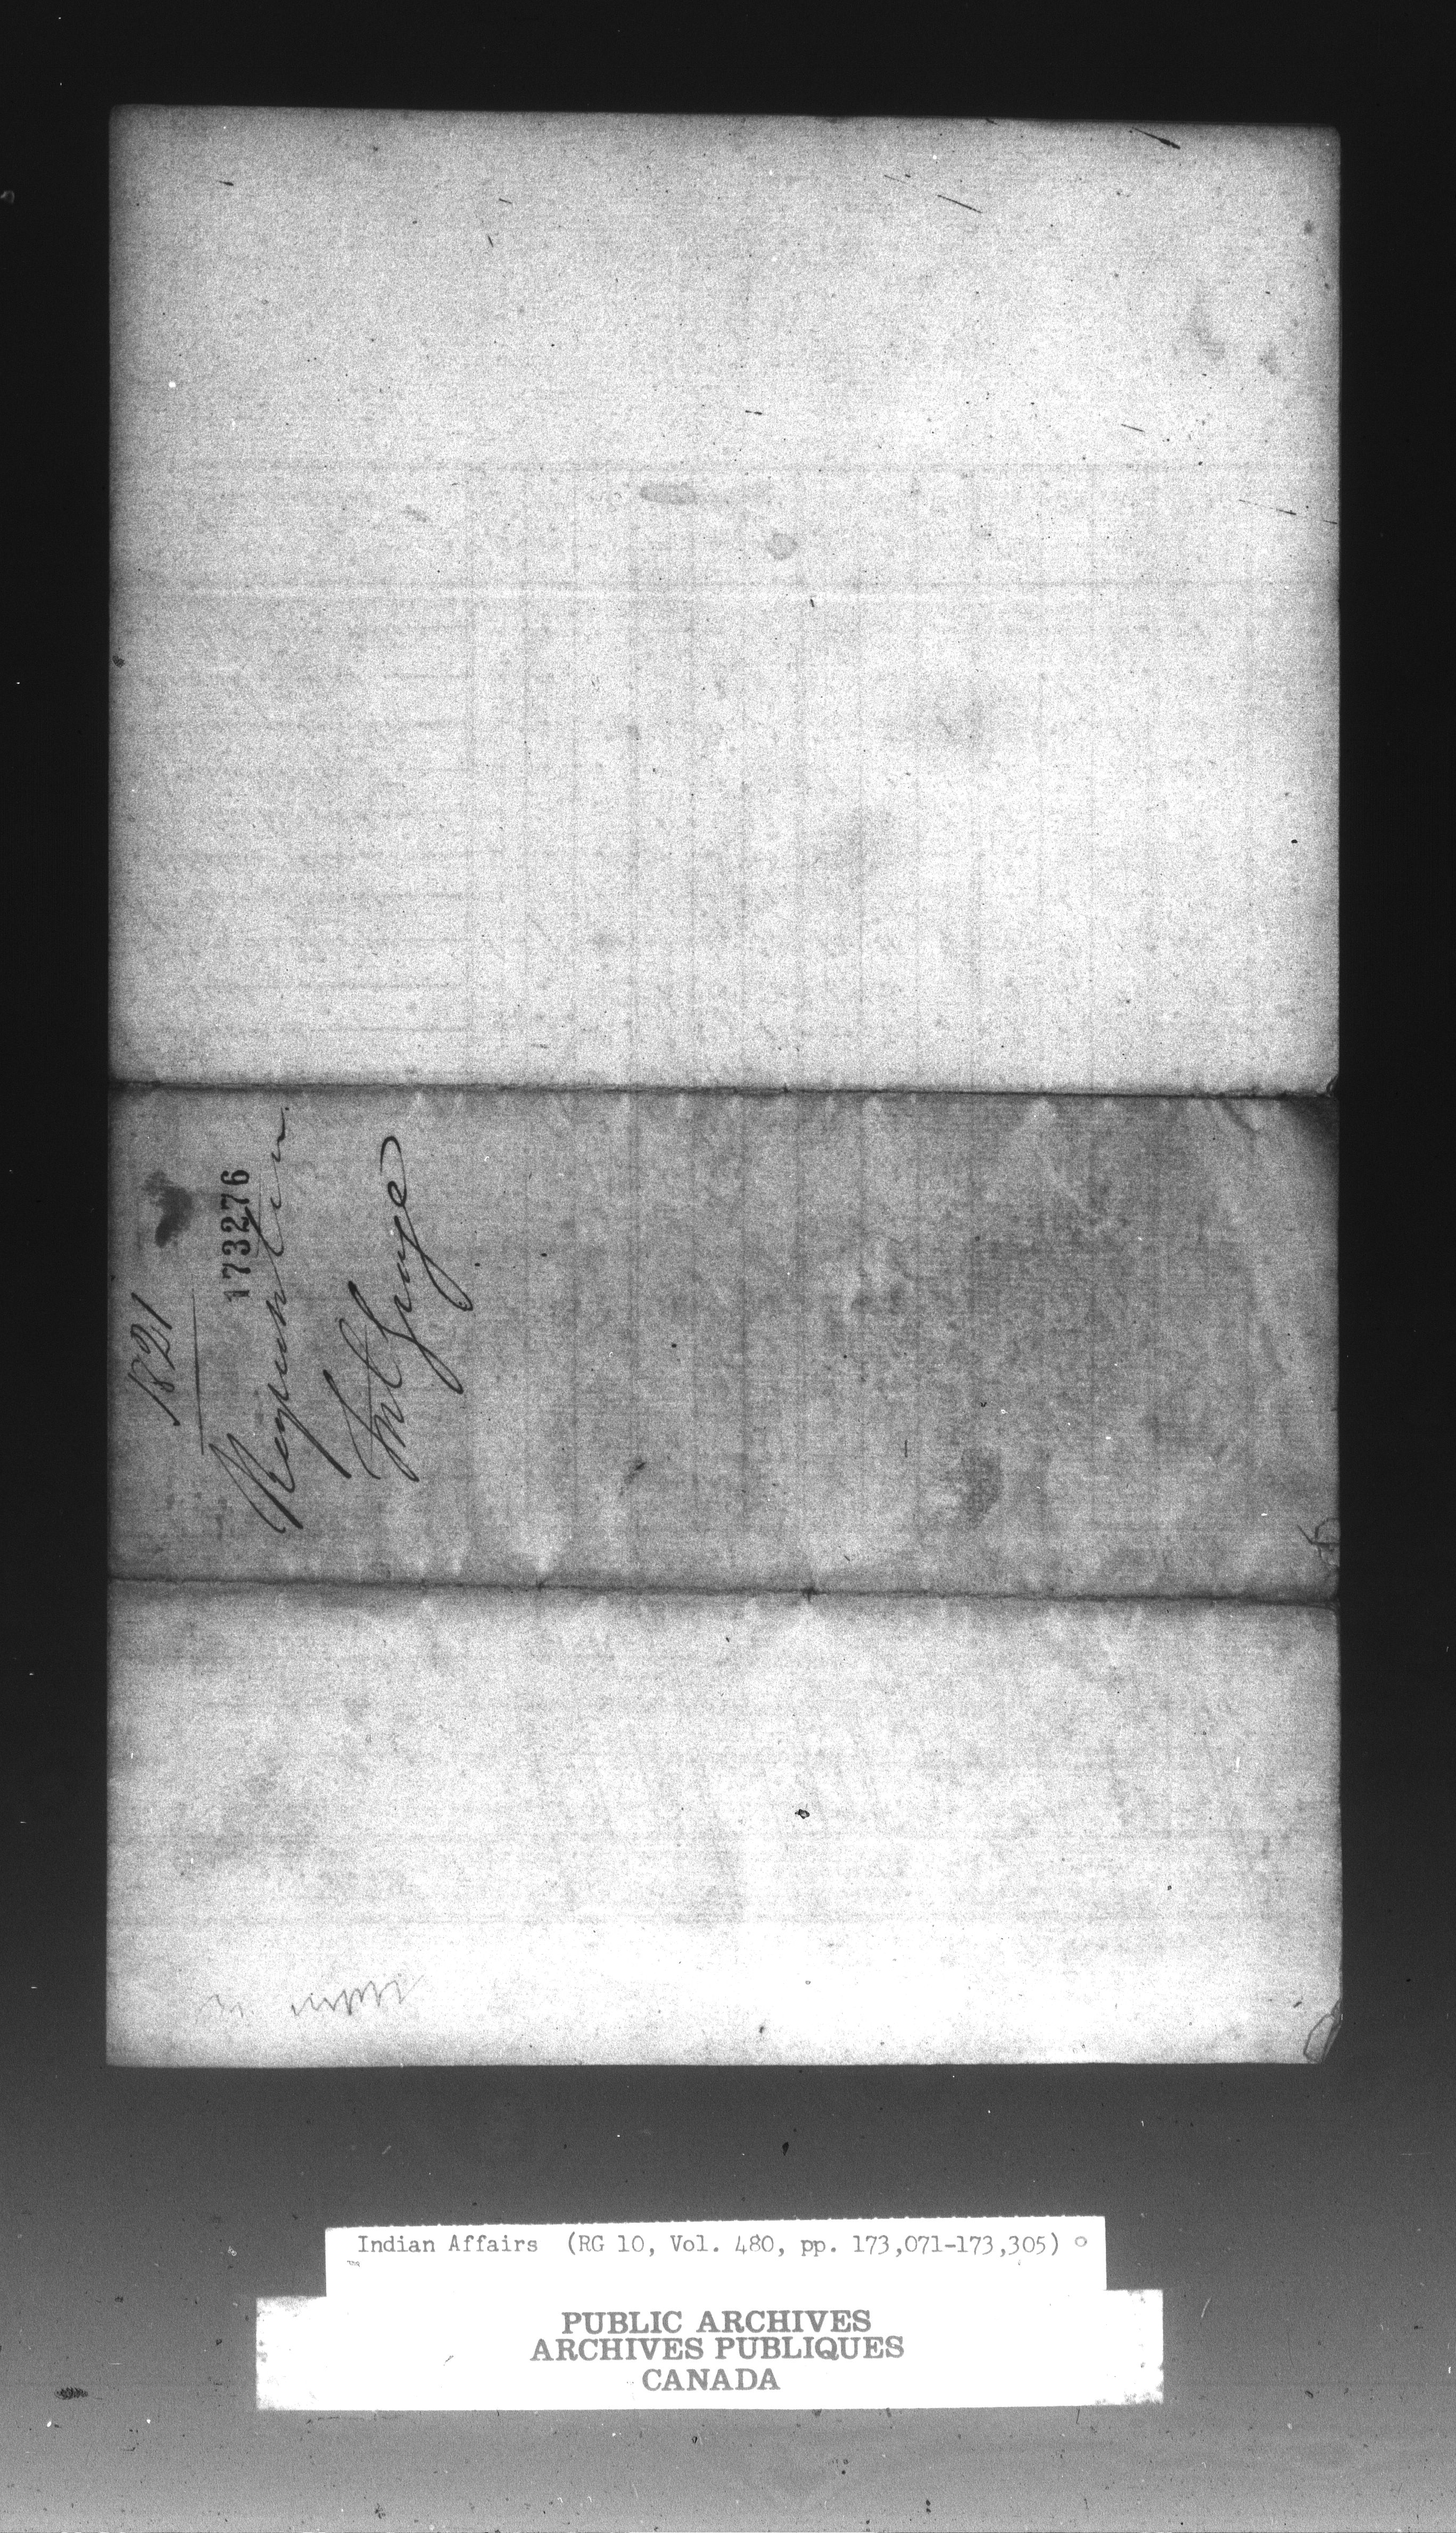 1821
173276
Requisition
Indian Affairs (RG 10, Vol. 480, pp. 173,071-173,305)
PUBLIC ARCHIVES
ARCHIVES PUBLIQUES
CANADA